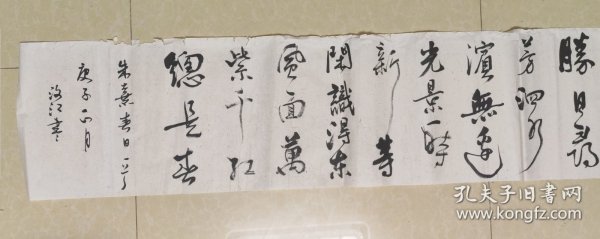 勝日尋
芳泗水
濱無邊
光景一時
新等
閑識得東
風面萬
紫千紅
總是春
朱熹春日一首
庚子正月
孔夫子旧书网
www.kongfz.com